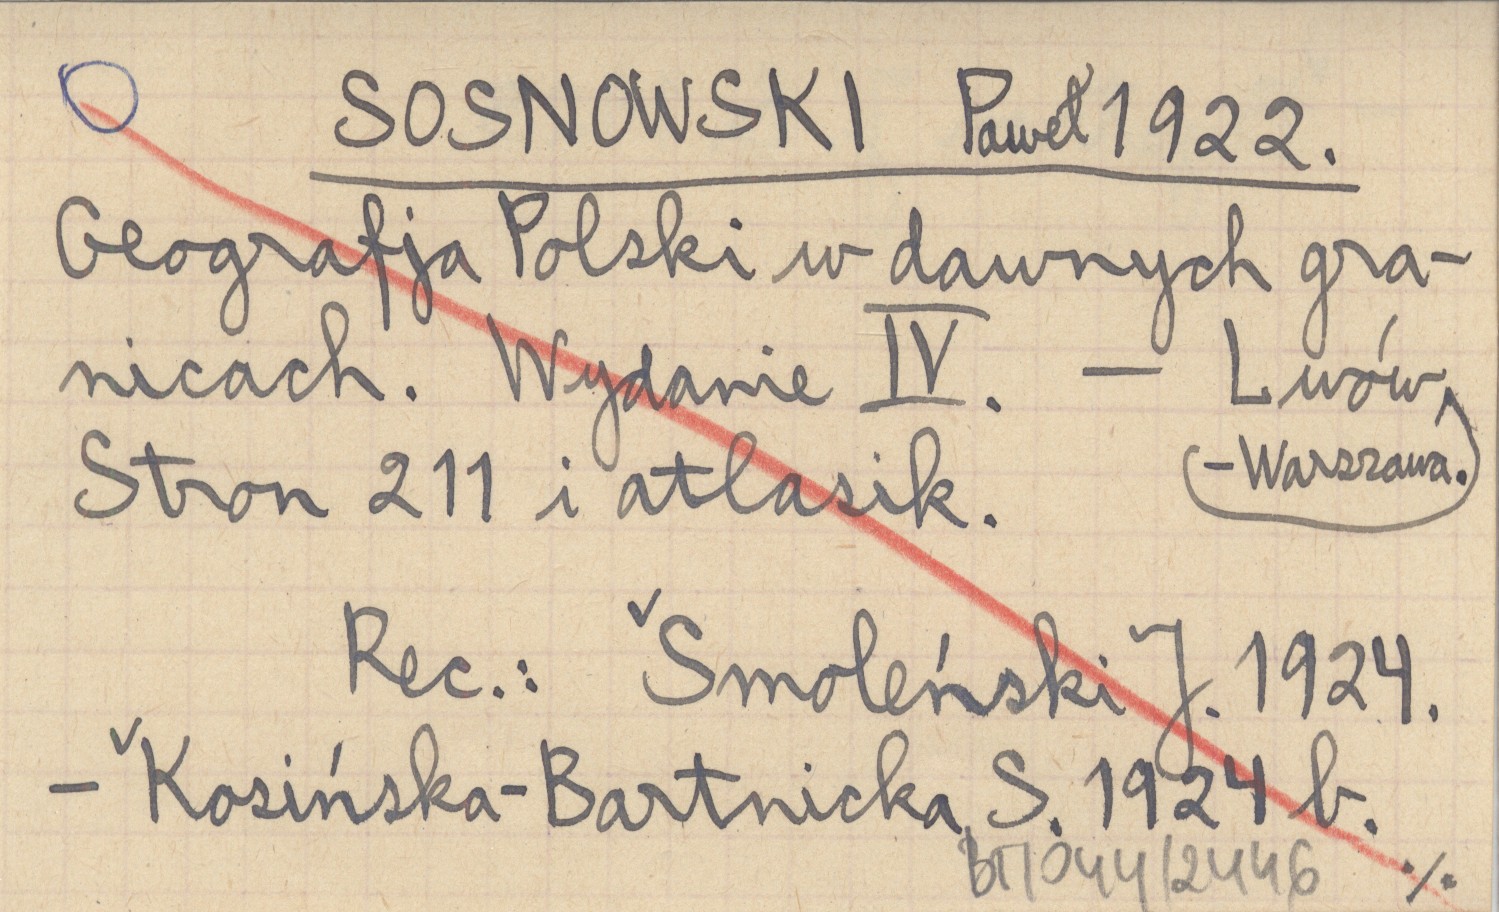 SOSNOWSKI Paweł 1922.
Geografja Polski w dawnych gra-
nicach. Wydanie IV. — Lwów
-Warszawa.
Stron 211 i atlasik.
Rec.: Smoleński J. 1924.
- Kosińska-Bartnicka S. 1924 b.
BT/044/2446
./.